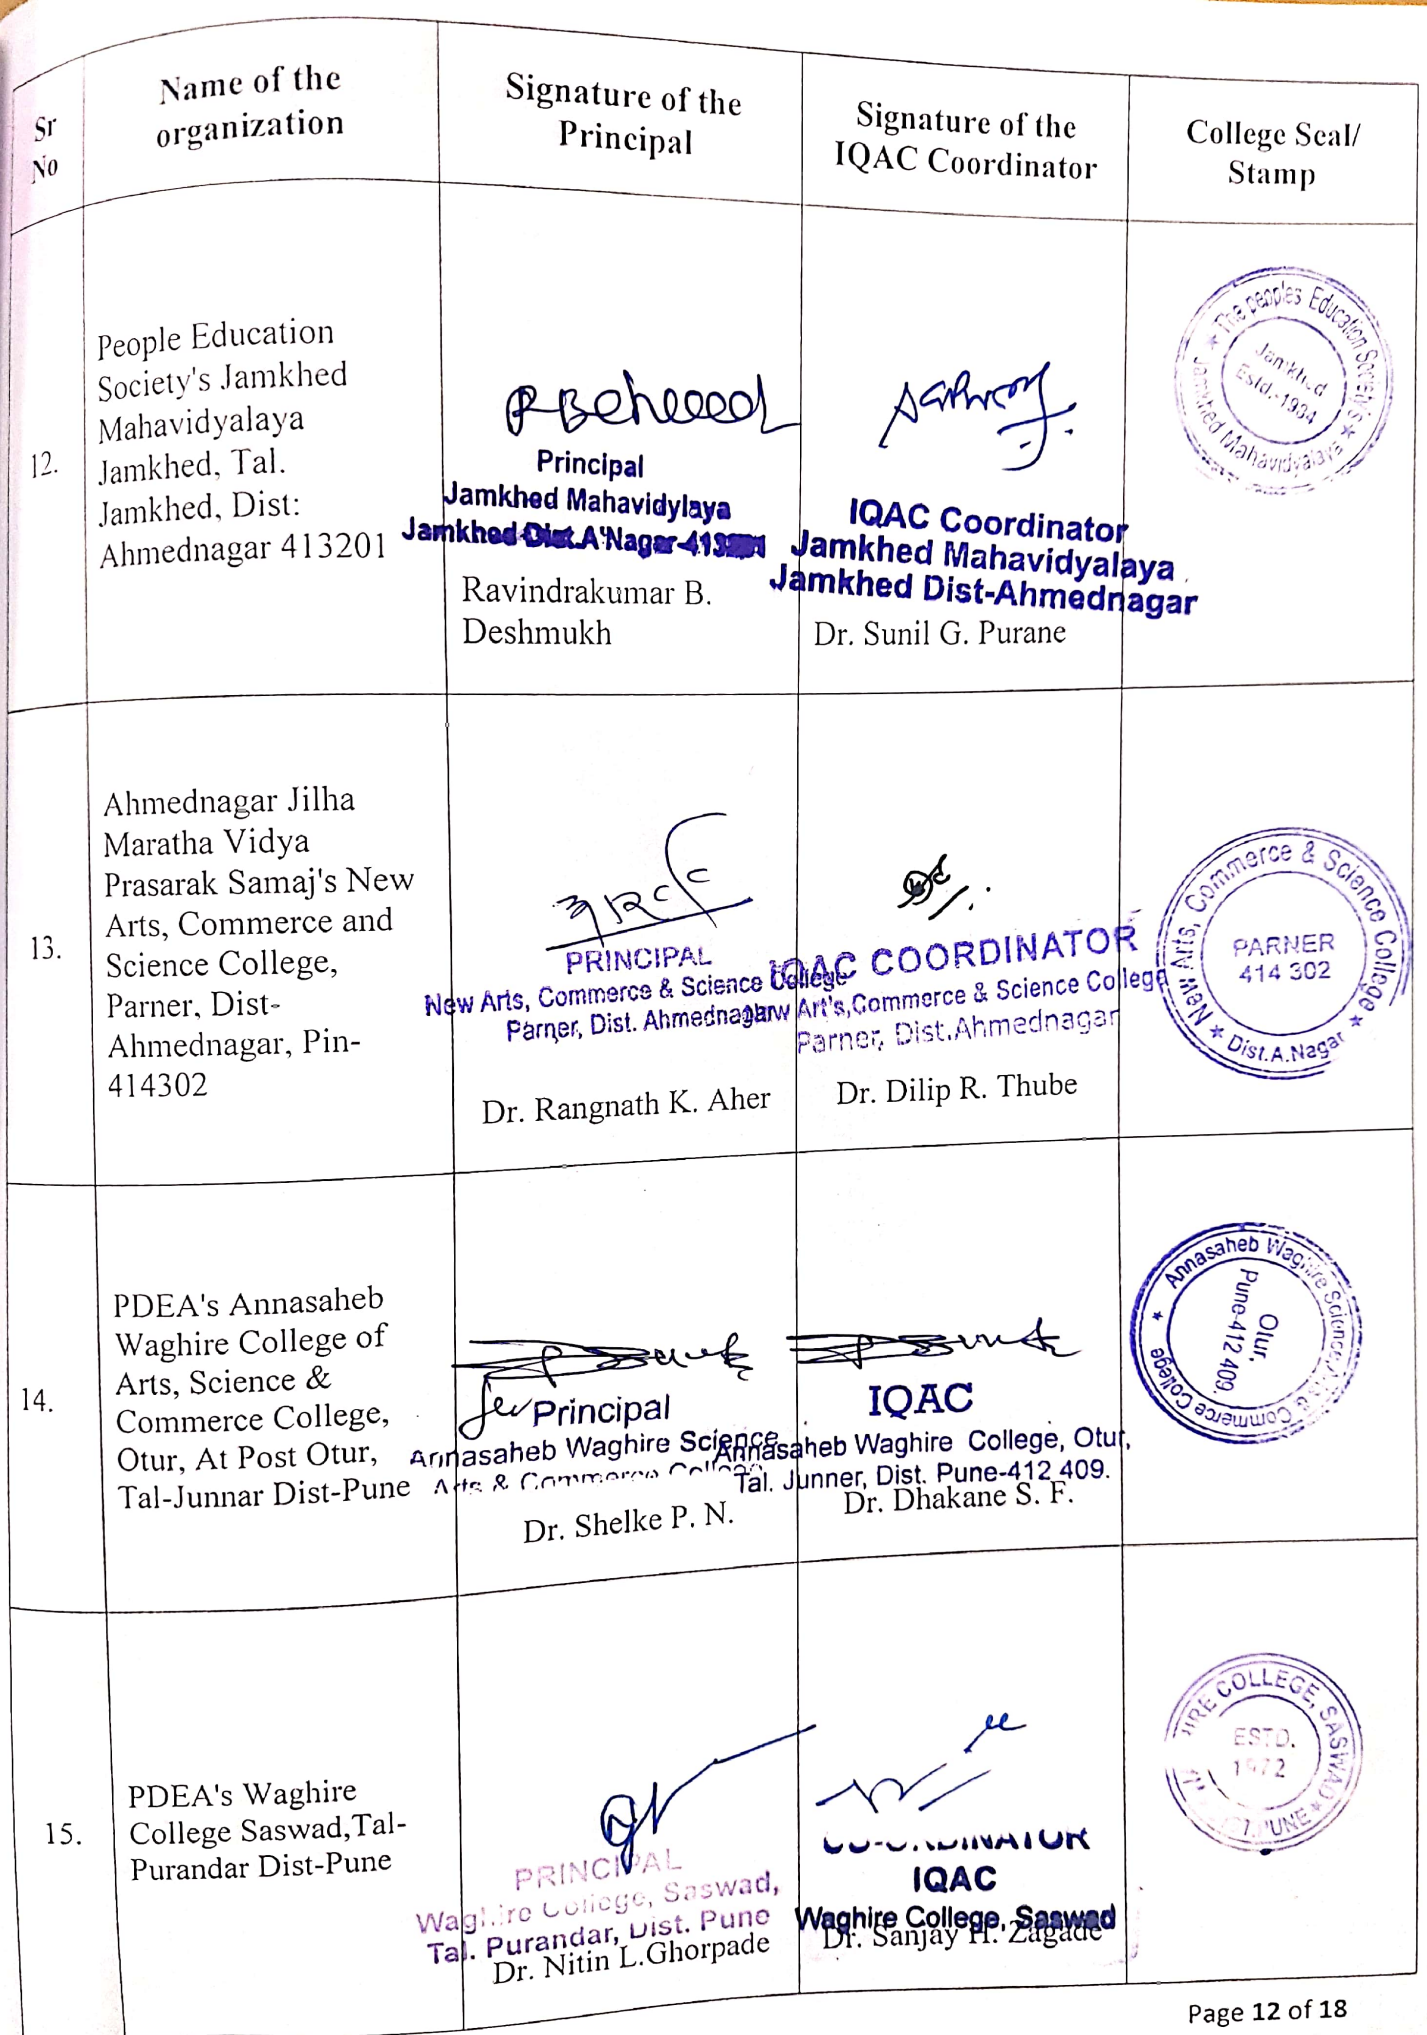 Sr
No
Name of the
organization
Signature of the
Principal
Signature of the
IQAC Coordinator
College Seal/
Stamp
12.
People Education
Society's Jamkhed
Mahavidyalaya
Jamkhed, Tal.
Jamkhed, Dist:
Ahmednagar 413201
Principal
Jamkhed Mahavidylaya
Jamkhed Dist.A'Nagar-413201
Ravindrakumar B.
Deshmukh
IQAC Coordinator
Jamkhed Mahavidyalaya
Jamkhed Dist-Ahmednagar
Dr. Sunil G. Purane
The peoples Education Society's
Jamkhed Mahavidyalaya
Jamkhed
Estd.-1934
13.
Ahmednagar Jilha
Maratha Vidya
Prasarak Samaj's New
Arts, Commerce and
Science College,
Parner, Dist-
Ahmednagar, Pin-
414302
PRINCIPAL
New Arts, Commerce & Science College
Parner, Dist. Ahmednagar
Dr. Rangnath K. Aher
IQAC COORDINATOR
Art's,Commerce & Science College
Parner, Dist.Ahmednagar
Dr. Dilip R. Thube
New Arts, Commerce & Science College
Dist.A.Nagar
PARNER
414 302
14.
PDEA's Annasaheb
Waghire College of
Arts, Science &
Commerce College,
Otur, At Post Otur,
Tal-Junnar Dist-Pune
Principal
Annasaheb Waghire Science
Arts & Commerce College
Dr. Shelke P. N.
IQAC
Annasaheb Waghire College, Otur,
Tal. Junner, Dist. Pune-412 409.
Dr. Dhakane S. F.
Annasaheb Waghire Science, Arts & Commerce College
Otur,
Pune-412 409.
15.
PDEA's Waghire
College Saswad,Tal-
Purandar Dist-Pune
PRINCIPAL
Waghire College, Saswad,
Tal. Purandar, Dist. Pune
Dr. Nitin L.Ghorpade
CO-ORDINATOR
IQAC
Waghire College, Saswad
Dr. Sanjay H. Zagade
COLLEGE, SASWAD
ESTD.
1972
Page 12 of 18